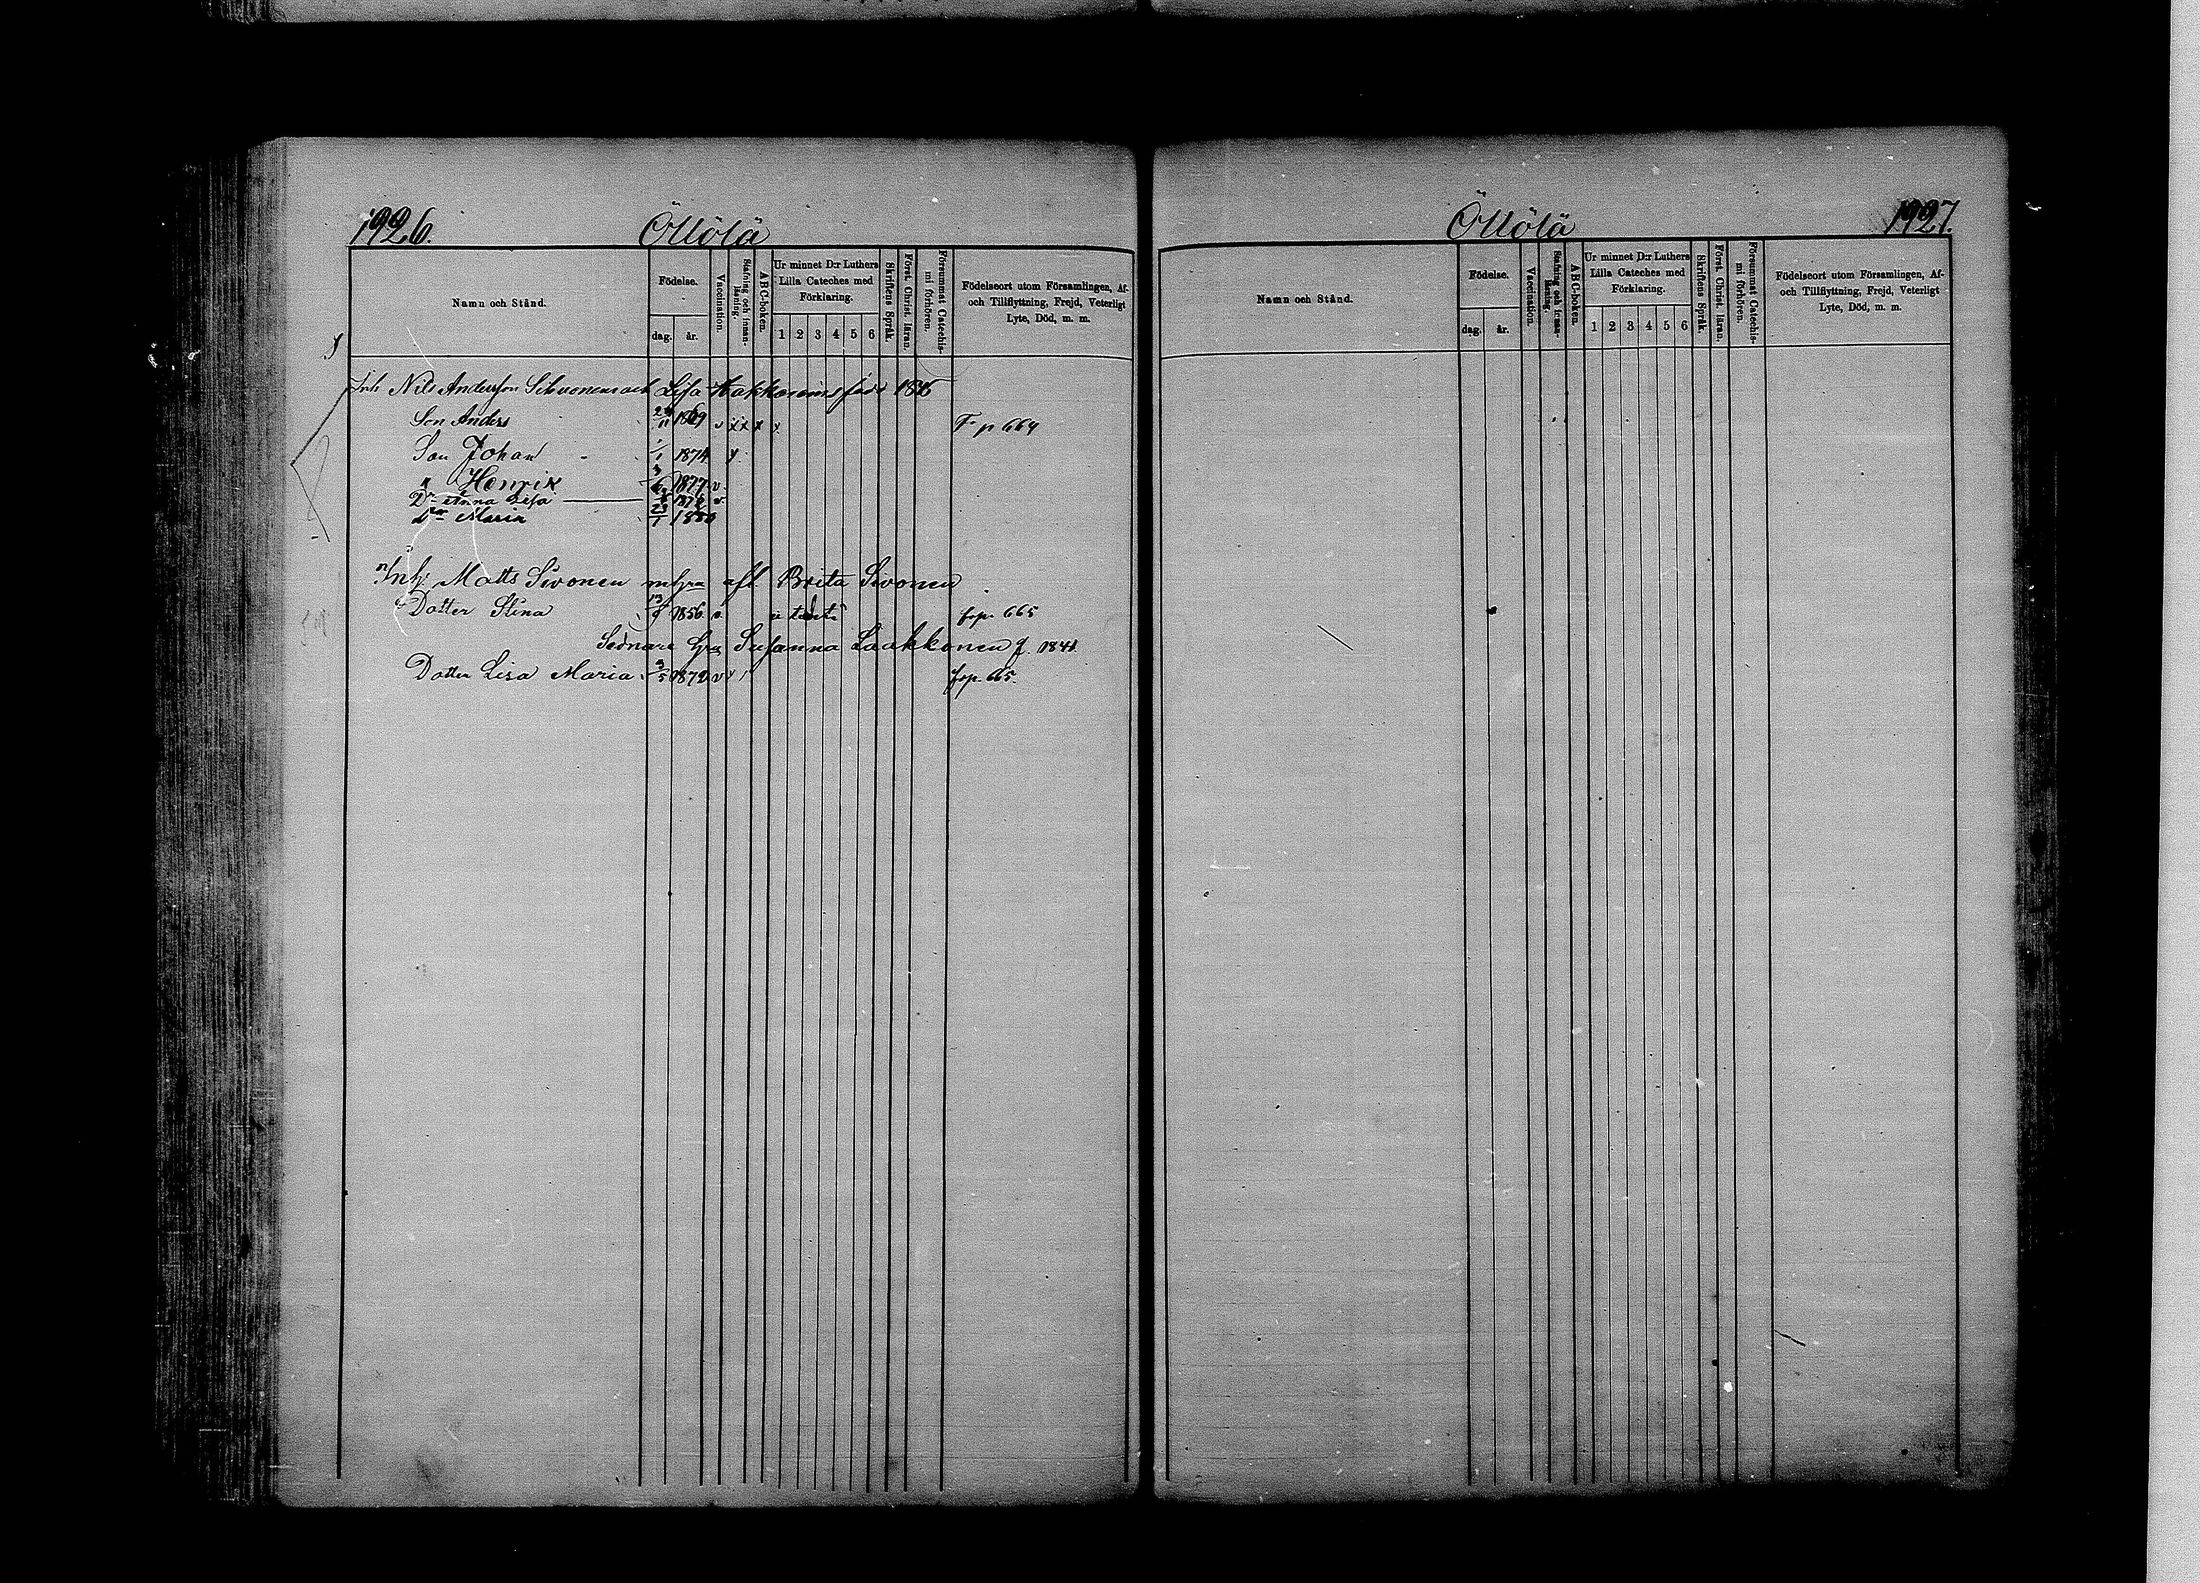 1926. Öllölä
Namn och Stånd.
Födelse.
dag. år.
Vaccination.
Stafning och innanläsning.
ABC-boken.
Ur minnet D:r Luthers
Lilla Cateches med
Förklaring.
1 2 3 4 5 6
Skriftens Språk.
Först. Christ. läran.
Försummat Catechismi förhören.
Födelseort utom Församlingen, Af-
och Tillflyttning, Frejd, Veterligt
Lyte, Död, m. m.
Inh Nils Andersson och Lisa
Son Anders 1869 v x x x x F p 664
Son Johan 1/1 1874
" Henrik 1877 v
Dr Anna Lisa
Dr Maria 1880
Inh: Matts Sivonen afl. Brita Sivonen
Dotter Stina 13/9 1856 v. fr p. 665
Sednare hu Susanna Laakkonen f. 1841
Dotter Lisa Maria 3/5 1872 v fr p. 665.
Öllölä 1927.
Namn och Stånd.
Födelse.
dag. år.
Vaccination.
Stafning och innanläsning.
ABC-boken.
Ur minnet D:r Luthers
Lilla Cateches med
Förklaring.
1 2 3 4 5 6
Skriftens Språk.
Först. Christ. läran.
Försummat Catechismi förhören.
Födelseort utom Församlingen, Af-
och Tillflyttning, Frejd, Veterligt
Lyte, Död, m. m.